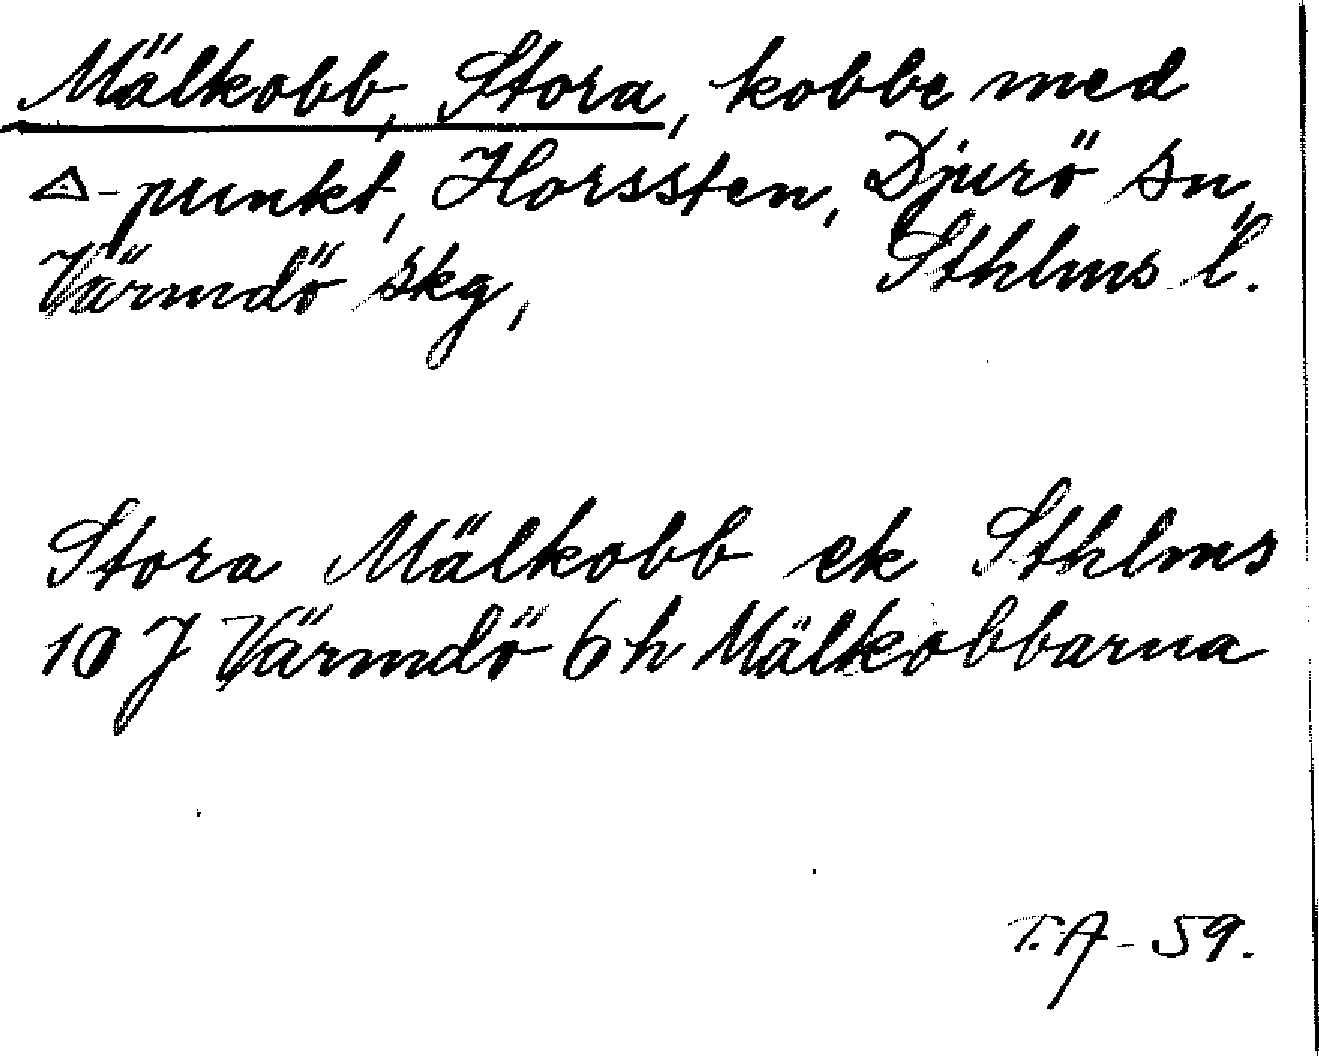 Mälkobb, Stora, kobbe med
△-punkt, Horssten, Djurö sn,
Värmdö skg, Sthlms l.
Stora Mälkobb ek Sthlms
10 J Värmdö 6h Mälkobbarna
T.A - 59.